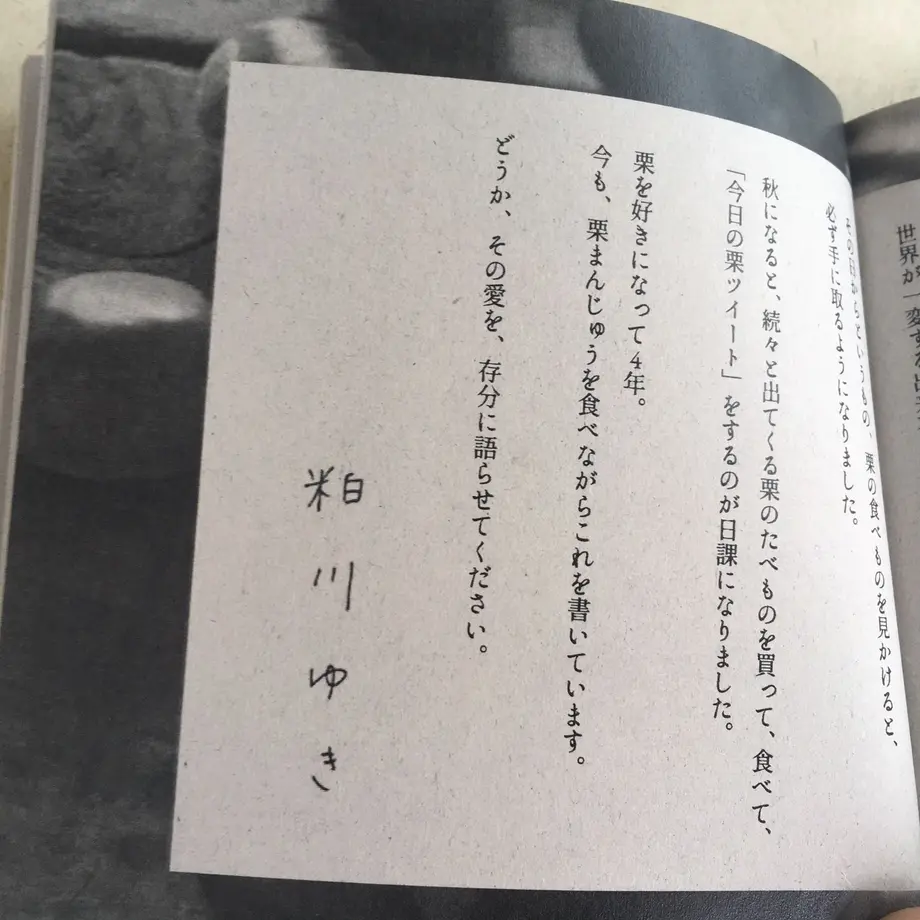 世界が一変する
その日からというもの、栗の食べものを見かけると、
必ず手に取るようになりました。
秋になると、続々と出てくる栗のたべものを買って、食べて、
「今日の栗ツイート」をするのが日課になりました。
栗を好きになって4年。
今も、栗まんじゅうを食べながらこれを書いています。
どうか、その愛を、存分に語らせてください。
粕川ゆき